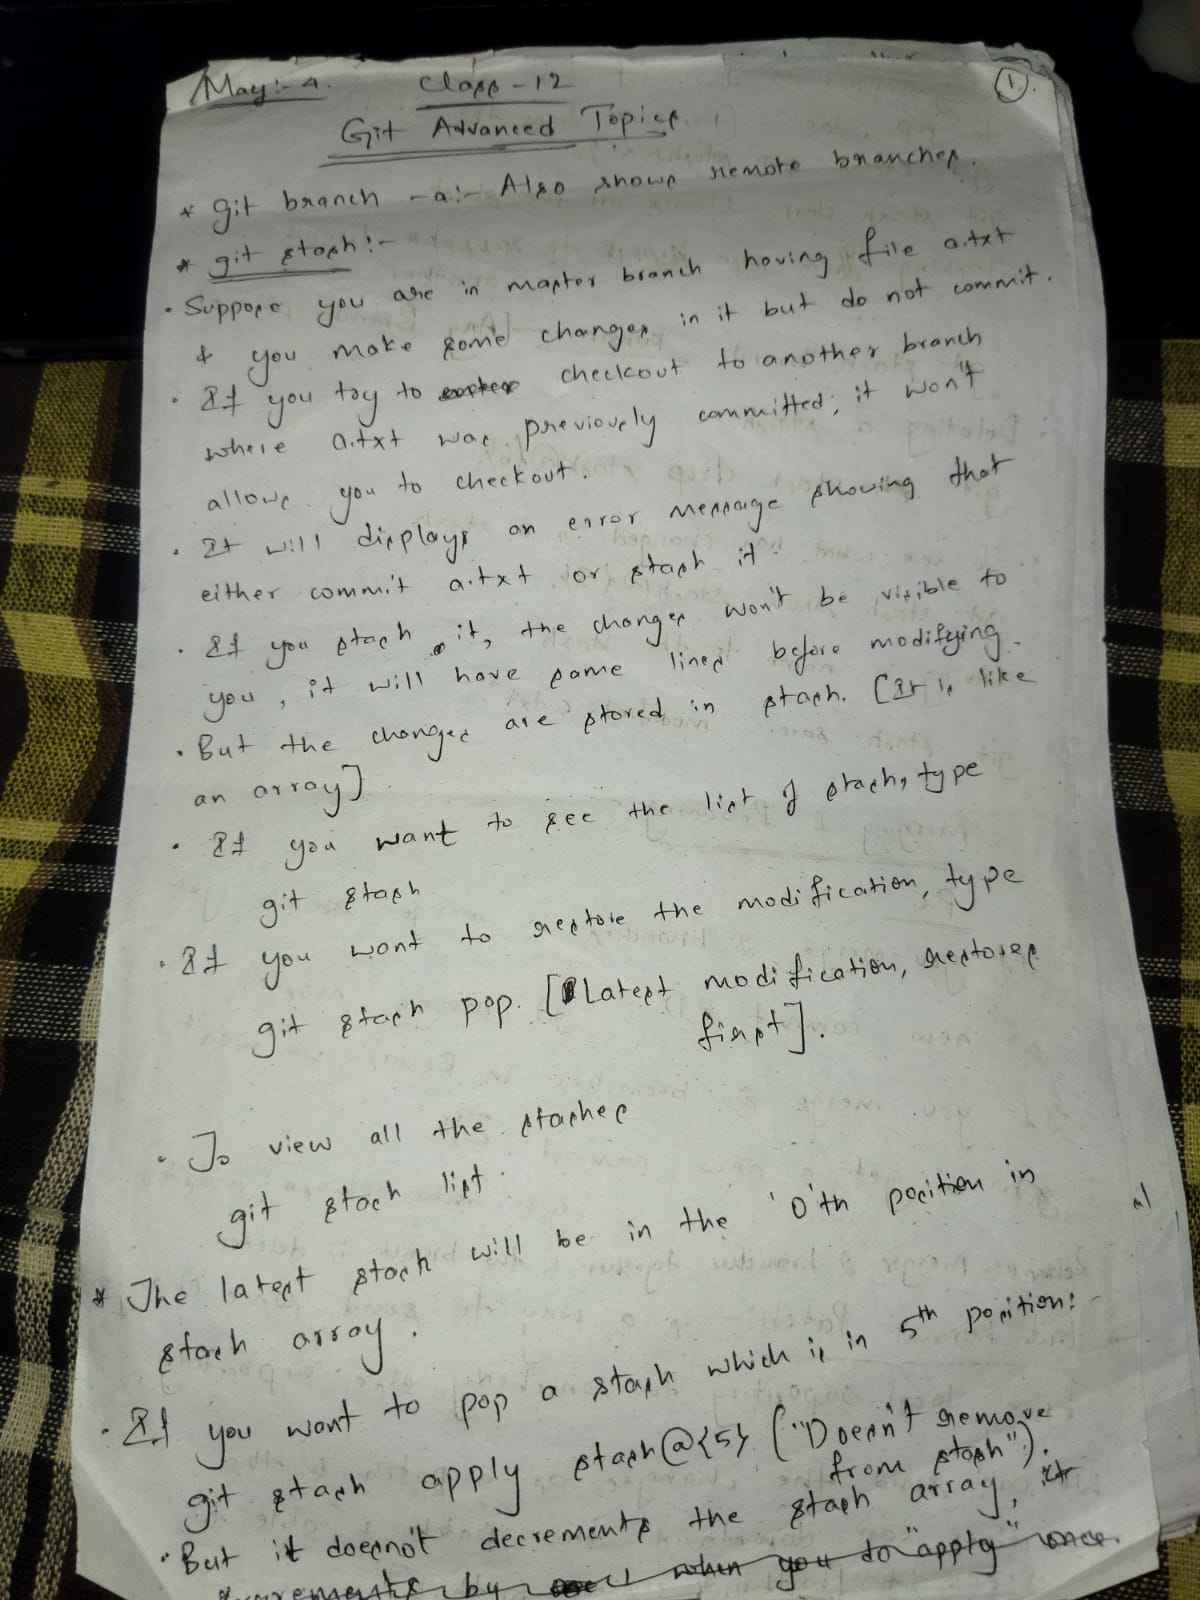 May:- 4. Class - 12 1.
Git Advanced Topics
* git branch -a:- Also shows remote branches.
* git stash:-
• Suppose you are in master branch having file a.txt
& you make some changes in it but do not commit.
• If you try to checkout to another branch
where a.txt was previously committed, it won't
allows you to checkout.
• It will displays an error message showing that
either commit a.txt or stash it.
• If you stash it, the changes won't be visible to
you, it will have same lines before modifying.
• But the changes are stored in stash. [It is like
an array]
• If you want to see the list of stash, type
git stash
• If you want to restore the modification, type
git stash pop. [Latest modification, restores
first].
• To view all the stashes
git stash list.
* The latest stash will be in the '0'th position in
stash array.
• If you want to pop a stash which is in 5th position:-
git stash apply stash@{5} ("Doesn't remove
from stash").
• But it doesn't decrements the stash array, it
by when you do "apply" once.